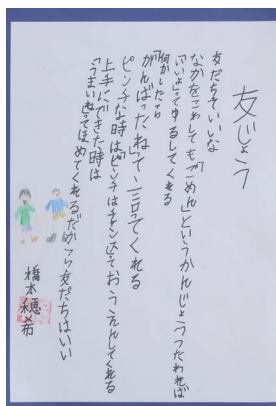 友じょう
友だちていいな
なかをこわしても「ごめん」というかんじょうつたわれば
「いいよ」ってゆるしてくれる
何かしたら
「がんばったね」って言ってくれる
ピンチな時は「ピンチはチャンス」っておうえんしてくれる
上手にできた時は
「うまいね」ってほめてくれるだから友だちはいい
橋本穂希